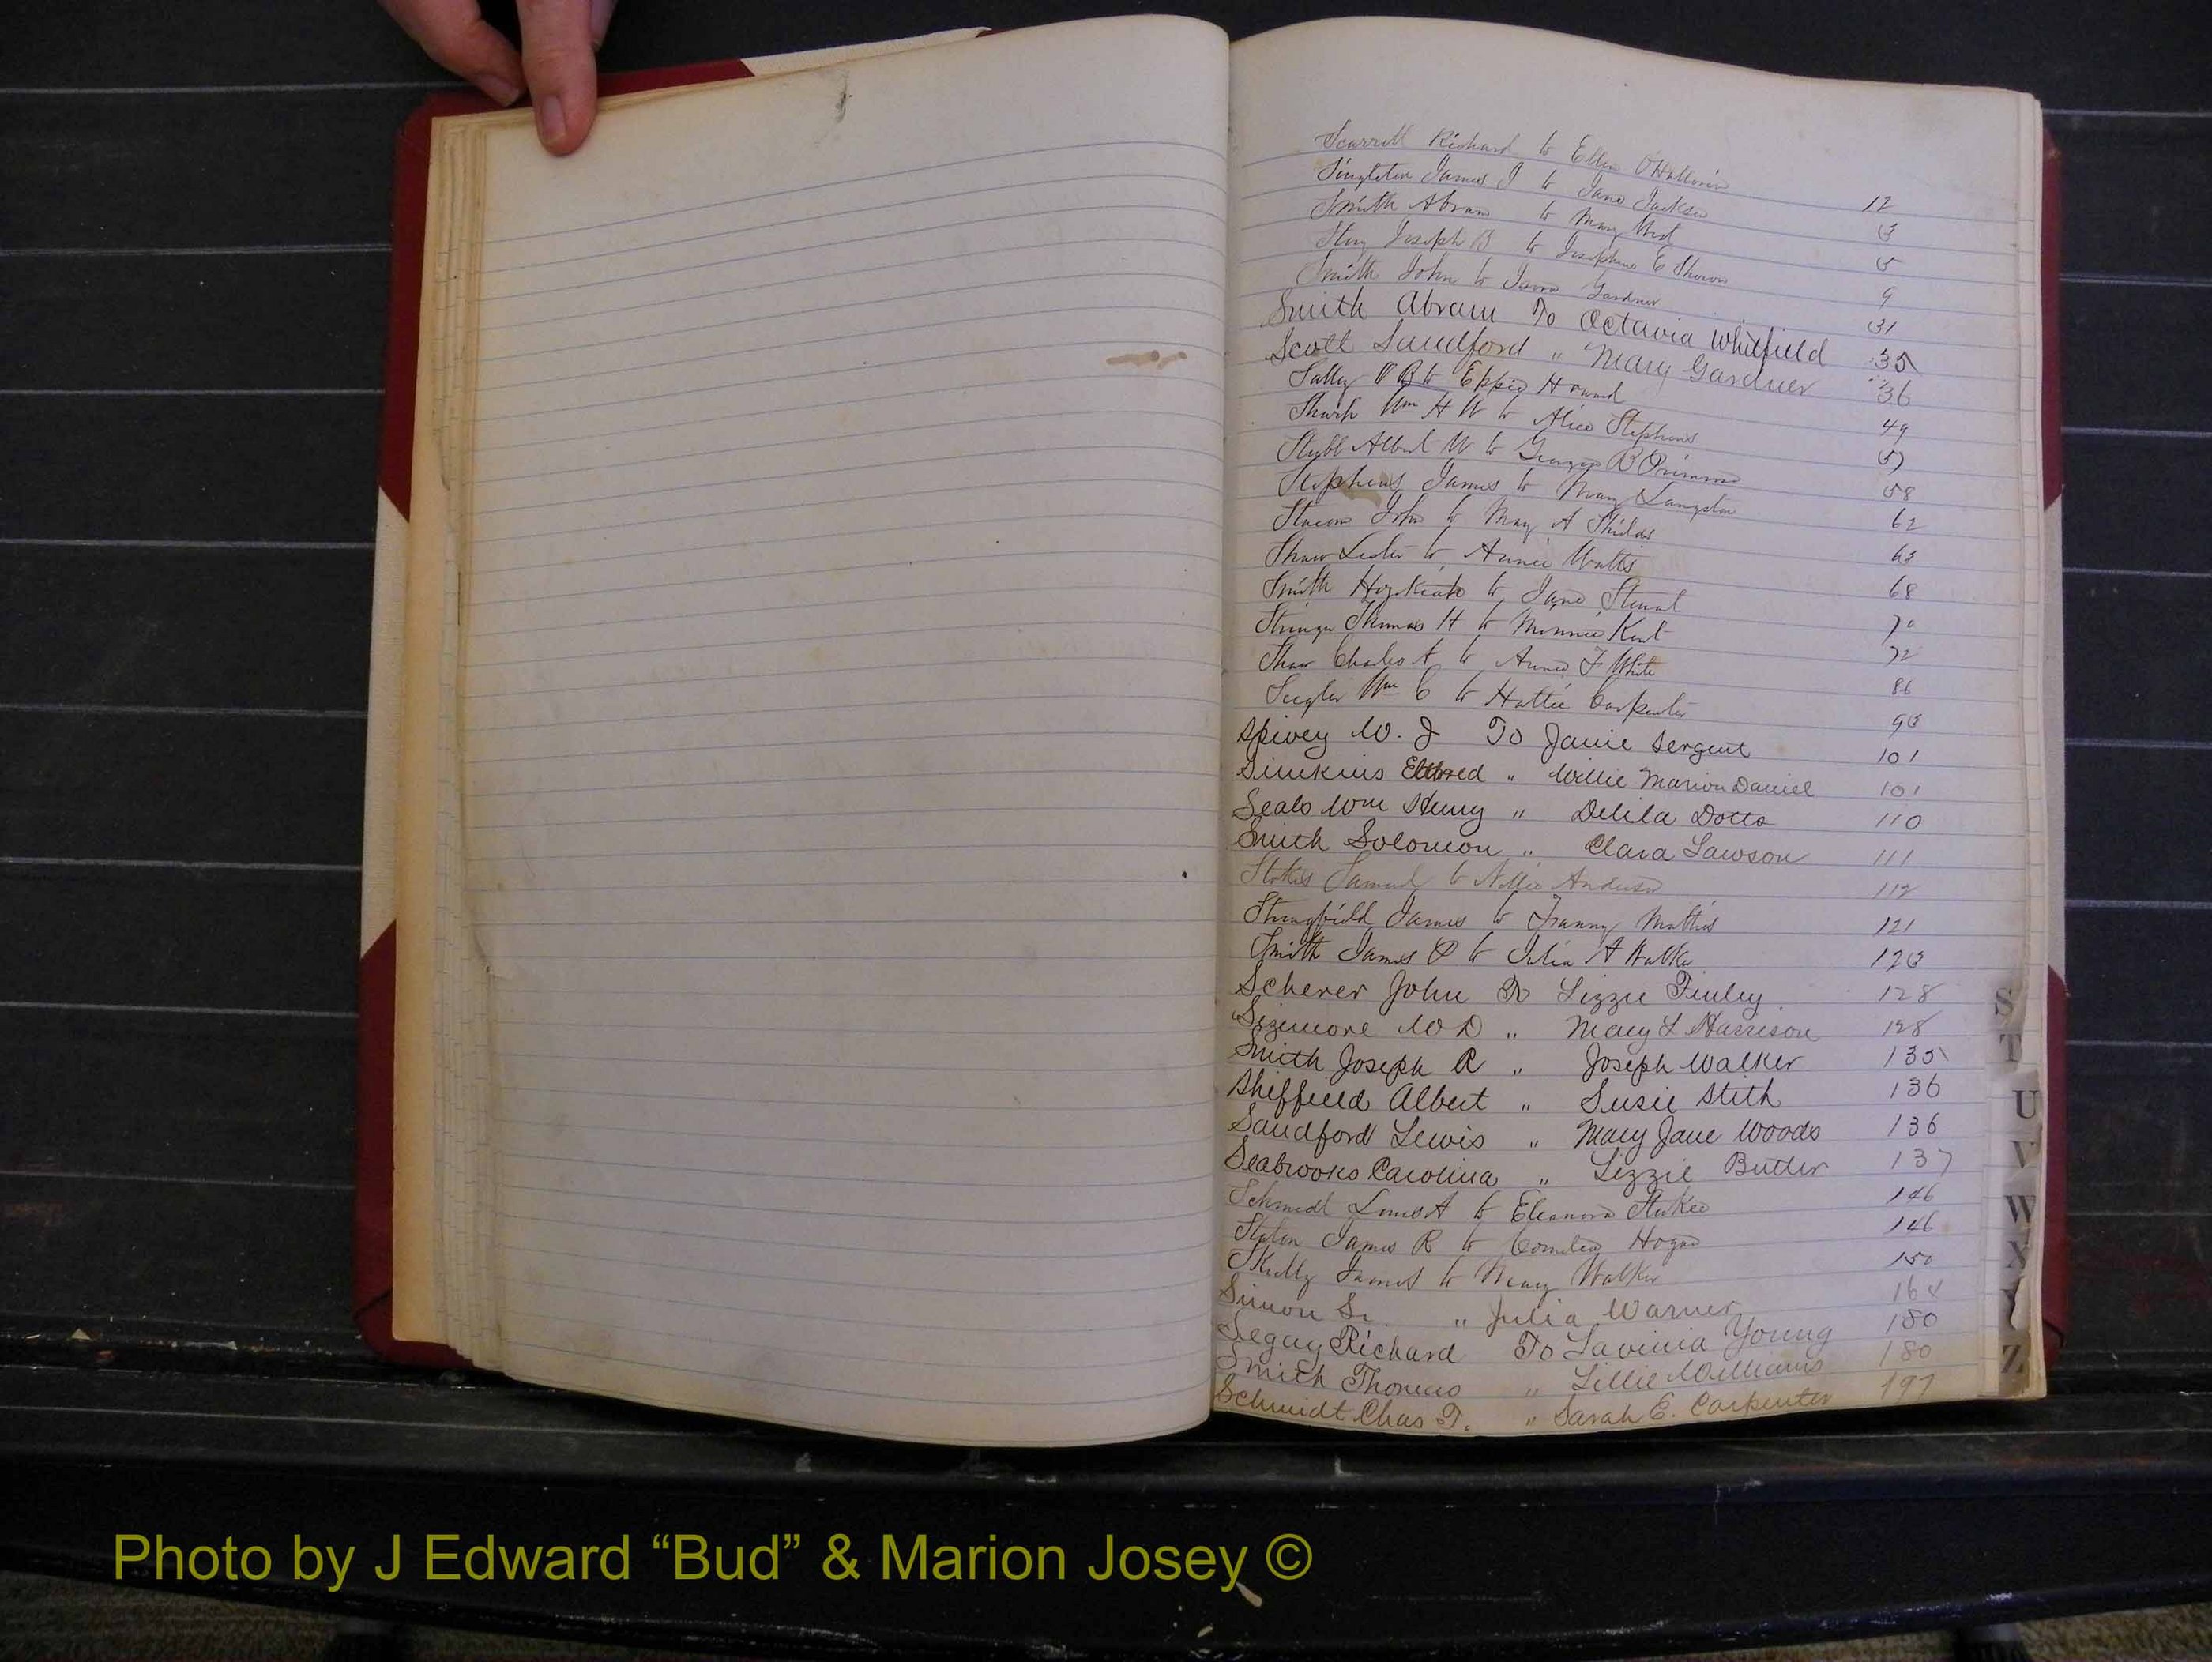 Scarrell Richard to Ellen O'Halloran 12
Singleton James J to Jane Jackson 3
Smith Abram to Mary West 5
Story Joseph B to Josephine E 9
Smith John to Isora Gardner 31
Smith Abram To Octavia Whitfield 35
Scott Sandford " Mary Gardner 36
Salley to Eppie 49
Sharp Wm H W to Alice Stephens 57
Albert W to Georgia B 58
Stephens James to Mary Langston 62
John to May A 63
Shaw Lester to Annie Watts 68
Smith Hezekiah to Jane Stewart 70
Stringer Thomas H to Minnie Kent 72
Shaw Charles A to Annie F White 86
Wm C to Hattie Carpenter 93
Spivey W. J To Janie Sergent 101
Simkins Eldred " Willie Marion Daniel 101
Seals Wm Henry " Delila Dotts 110
Smith Solomon " Clara Lawson 111
Stokes Samuel to Nellie Anderson 112
Stringfield James to Franny Mathis 121
Smith James P to Julia A Walker 123
Scherer John To Lizzie Finley 128
Sizemore W D " Mary L Harrison 128
Smith Joseph R " Joseph Walker 135
Sheffield Albert " Susie Stith 136
Sandford Lewis " Mary Jane Woods 136
Seabrooks Carolina " Lizzie Butler 137
Schmidt Louis A to Eleanora 146
James R to Cornelia Hogan 146
Skelly James to Mary Walker 150
Simon Sr. " Julia Warner 164
Segay Richard To Lavinia Young 180
Smith Thomas " Lillie Williams 180
Schmidt Chas T. " Sarah E. Carpenter 197
S
T
U
V
W
X
Y
Z
Photo by J Edward “Bud” & Marion Josey ©